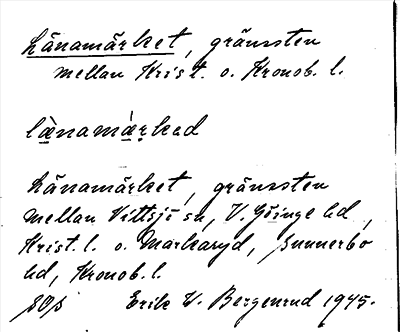 Länamärket, gränssten
mellan Krist. o. Kronob. l.
länamärkad
Länamärket, gränssten
mellan Vittsjö sn, V. Göinge hd,
Krist. l. o. Markaryd, Sunnerbo
hd, Kronob. l.
Erik W. Bergenrud 1945.